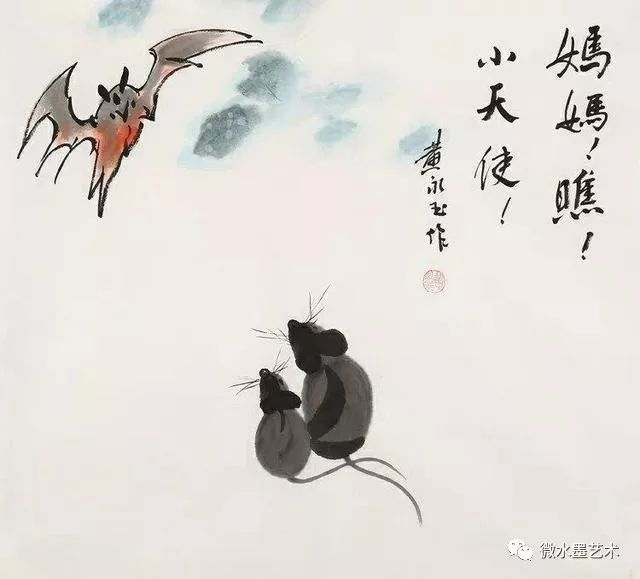 媽媽！瞧！
小天使！
黄永玉作
微水墨艺术